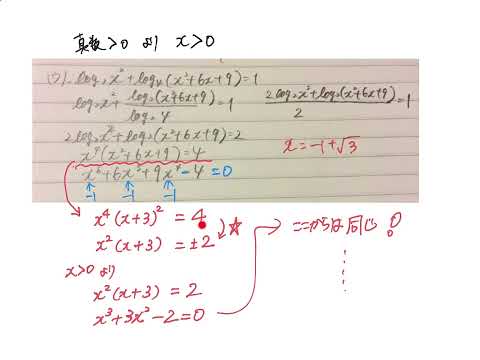 真数>0 より x>0
(2). log₂x²+log₄(x²+6x+9)=1
log₂x²+ log₂(x²+6x+9)/log₂4 =1
(2log₂x²+log₂(x²+6x+9))/2 =1
2log₂x²+log₂(x²+6x+9)=2
x⁴(x²+6x+9)=4
x=-1+√3
x⁶+6x⁵+9x⁴-4=0
-1 -1 -1
x⁴(x+3)²=4
x²(x+3)=±2 ☆
ここからは同じ!
x>0 より
x²(x+3)=2
x³+3x²-2=0